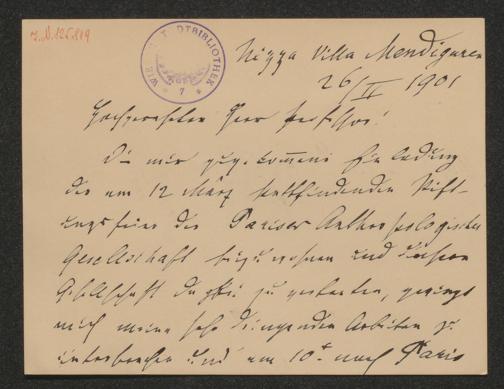 J.N. 126.819
WIENER STADTBIBLIOTHEK
Nizza Villa Mendiguren
26/II 1901
Hochgeehrter Herr
Die mir zugekommene Einladung
der am 12 März stattfindenden Stift-
ungsfeier der Pariser Anthropologischen
Gesellschaft beizuwohnen und unsere
Gesellschaft dabei zu vertreten, zwingt
mich meine sehr dringenden Arbeiten zu
unterbrechen und am 10t nach Paris